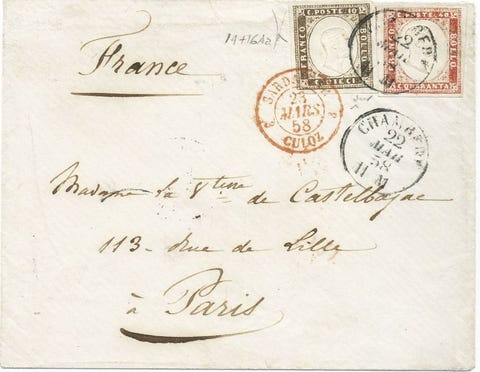 14716A2
France
FRANCO C. POSTE 10 BOLLO C. DIECI
C. POSTE 40 BOLLO C. QUARANTA
22
MAR
SARD.
23
MARS
58
CULOZ
CHAMBERY
22
MAR
58
11 M
Madame la Vtesse de Castelbajac
113 - Rue de Lille
à Paris